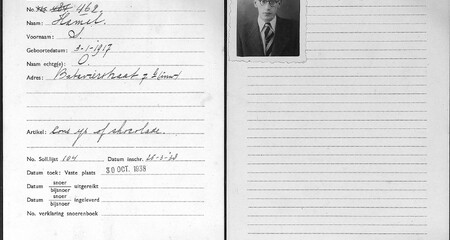 No. 462
Naam: Hamel
Voornaam: S.
Geboortedatum: 3-1-1917
Naam echtg(e): O.
Adres: Batavierstraat
Artikel: Cons ijs of chocolade.
No. Soll.lijst 104 Datum inschr.
Datum toek: Vaste plaats 30 OCT. 1938
Datum snoer bijsnoer uitgereikt
Datum snoer bijsnoer ingeleverd
No. verklaring snoerenboek